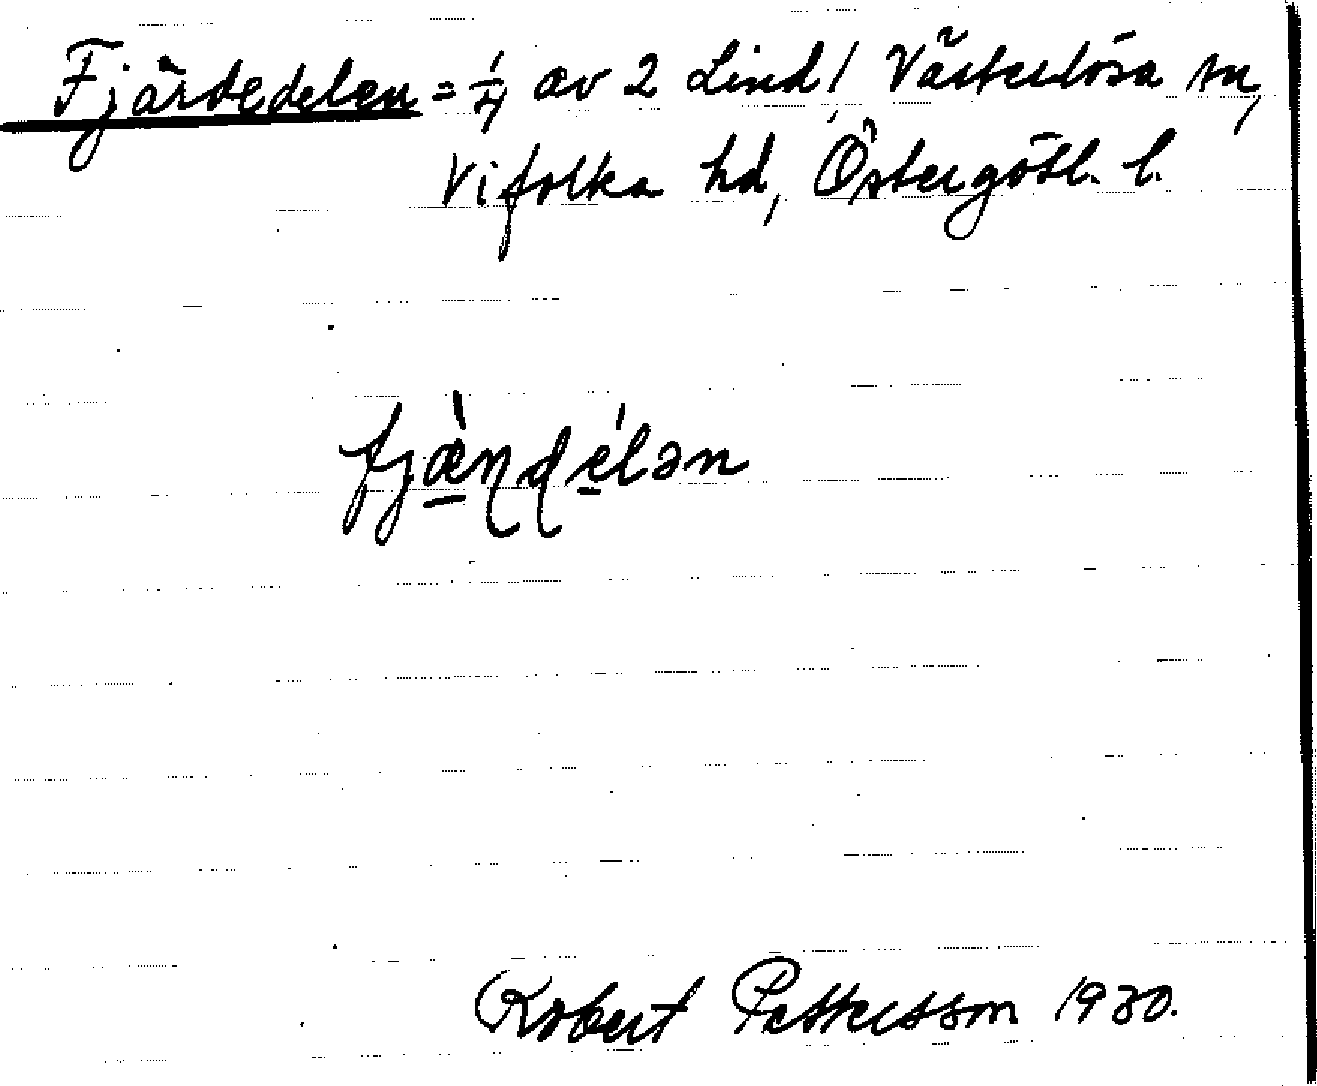 Fjärdedelen = 1/4 av 2 Lind! Västerlösa sn,
Vifolka hd, Östergötl. l.
fjæ̀ɳɖélən
Robert Pettersson 1930.